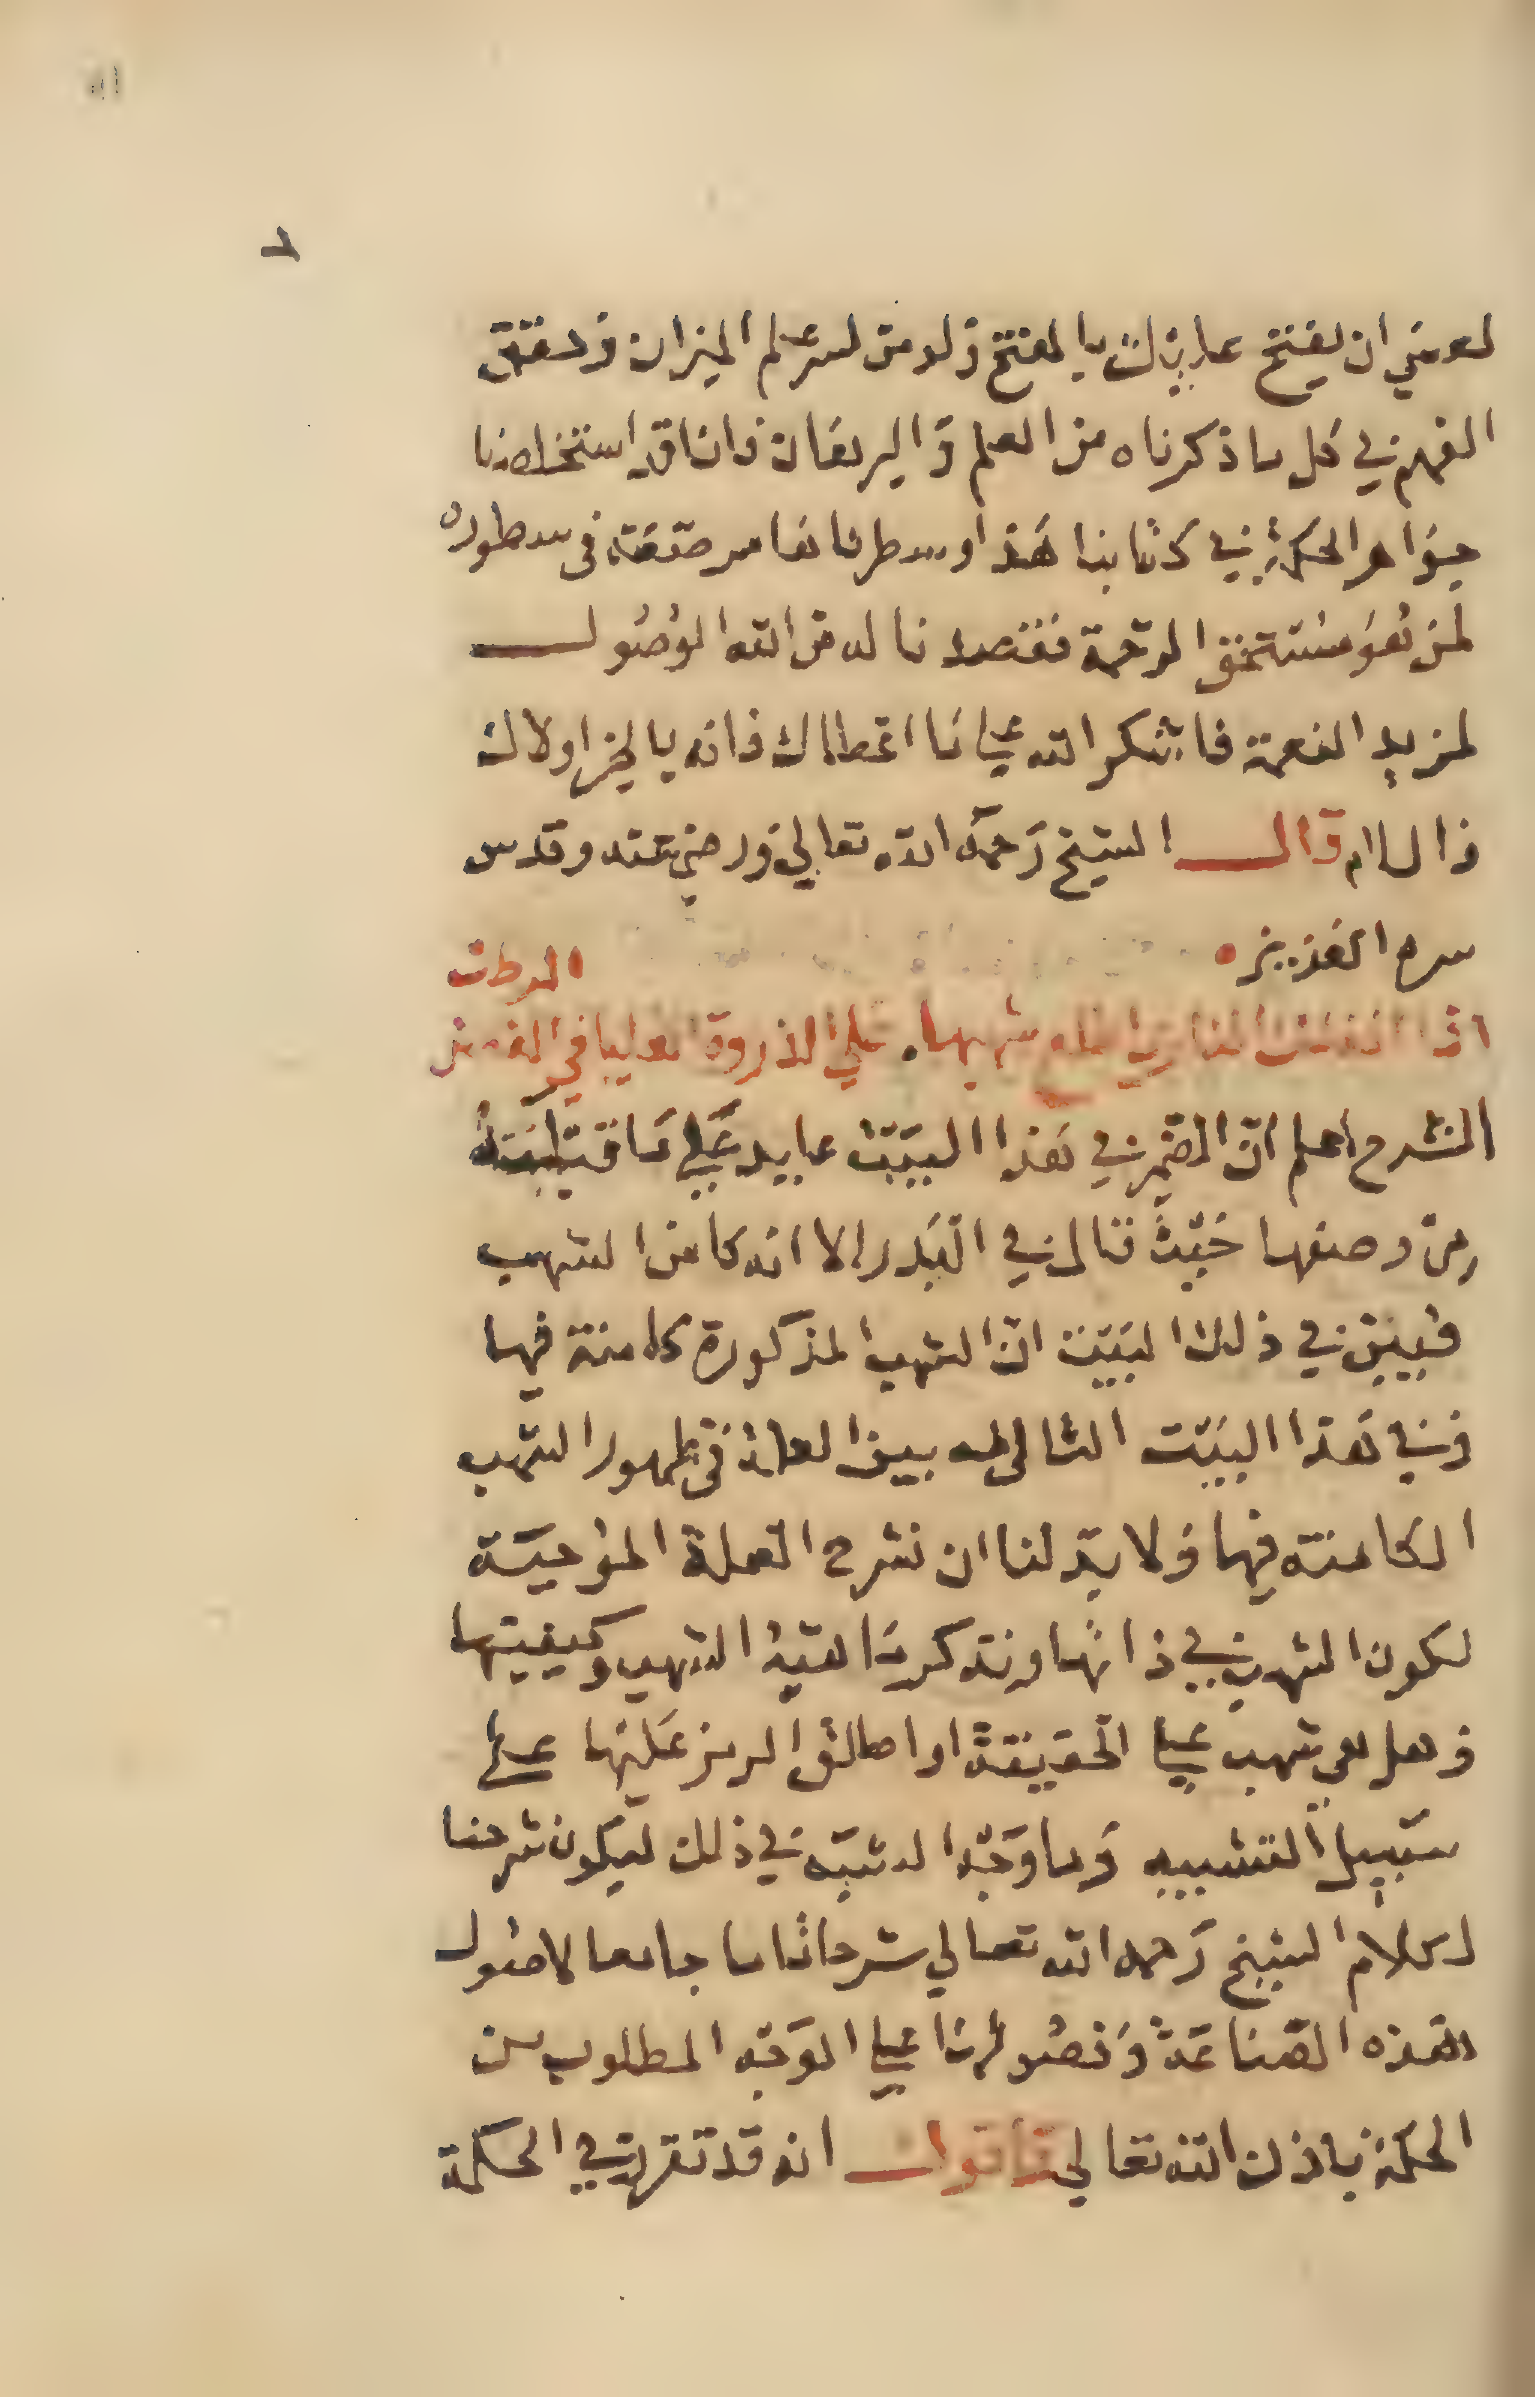 ان يفتح عليك بالمفتح ولو من لسر علم الميزان وحقق
الفهم في كل ما ذكرناه من العلم والبرهان فاننا قد استخلصنا
جواهر الحكمة في كتابنا هذا وسطرناها مرصعة في سطوره
لمن هو مستحق الرحمة فقصدنا له من الله الوصول
لمزيد النعمة فاشكر الله علي ما اعطاك فانه بالخير اولاك
قال الشيخ رحمه الله تعالي ورضي عنه وقدس
سره العزيز
اذا علي الذروة العليا في
الشرح اعلم ان الضمير في هذا البيت عايد علي ما قبله
من وصفها حيث قال في البدر الا انه كامن الشهب
فبين في ذلك البيت ان الشهب المذكورة كامنة فيها
وفي هذا البيت الثاني له بين العلة في ظهور الشهب
الكامنة فيها ولا بد لنا ان نشرح العلة الموجبة
لكون الشهب في ذاتها ونذكر ماهية الشهب وكيفيتها
وهل هي شهب علي الحقيقة او اطلق الرمز عليها علي
سبيل التشبيه وما وجه الشبه في ذلك ليكون شرحنا
لكلام الشيخ رحمه الله تعالي شرحا تاما جامعا لاصول
هذه الصناعة وفصولها علي الوجه المطلوب من
الحكمة باذن الله تعالي فاقول انه قد تقرر في الحكمة